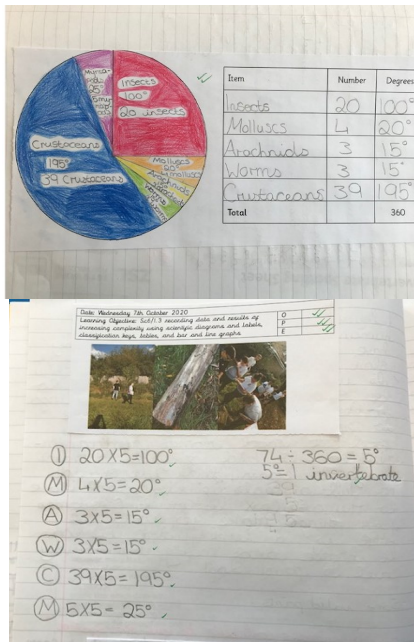 Insects
100°
20 insects
Crustaceans
195°
39 Crustaceans
25°
Molluscs
20°
Arachnids
Worms
Item Number Degrees
Insects 20 100°
Molluscs 4 20°
Arachnids 3 15°
Worms 3 15°
Crustaceans 39 195°
Total 360
Date: Wednesday 7th October 2020
Learning Objective: Sci/1.3 recording data and results of
increasing complexity using scientific diagrams and labels,
classification keys, tables, and bar and line graphs
O
P
E
I 20X5=100°
M 4X5=20°
A 3X5=15°
W 3X5=15°
C 39X5=195°
M 5X5=25°
74÷360=5°
5°=1 invertebrate